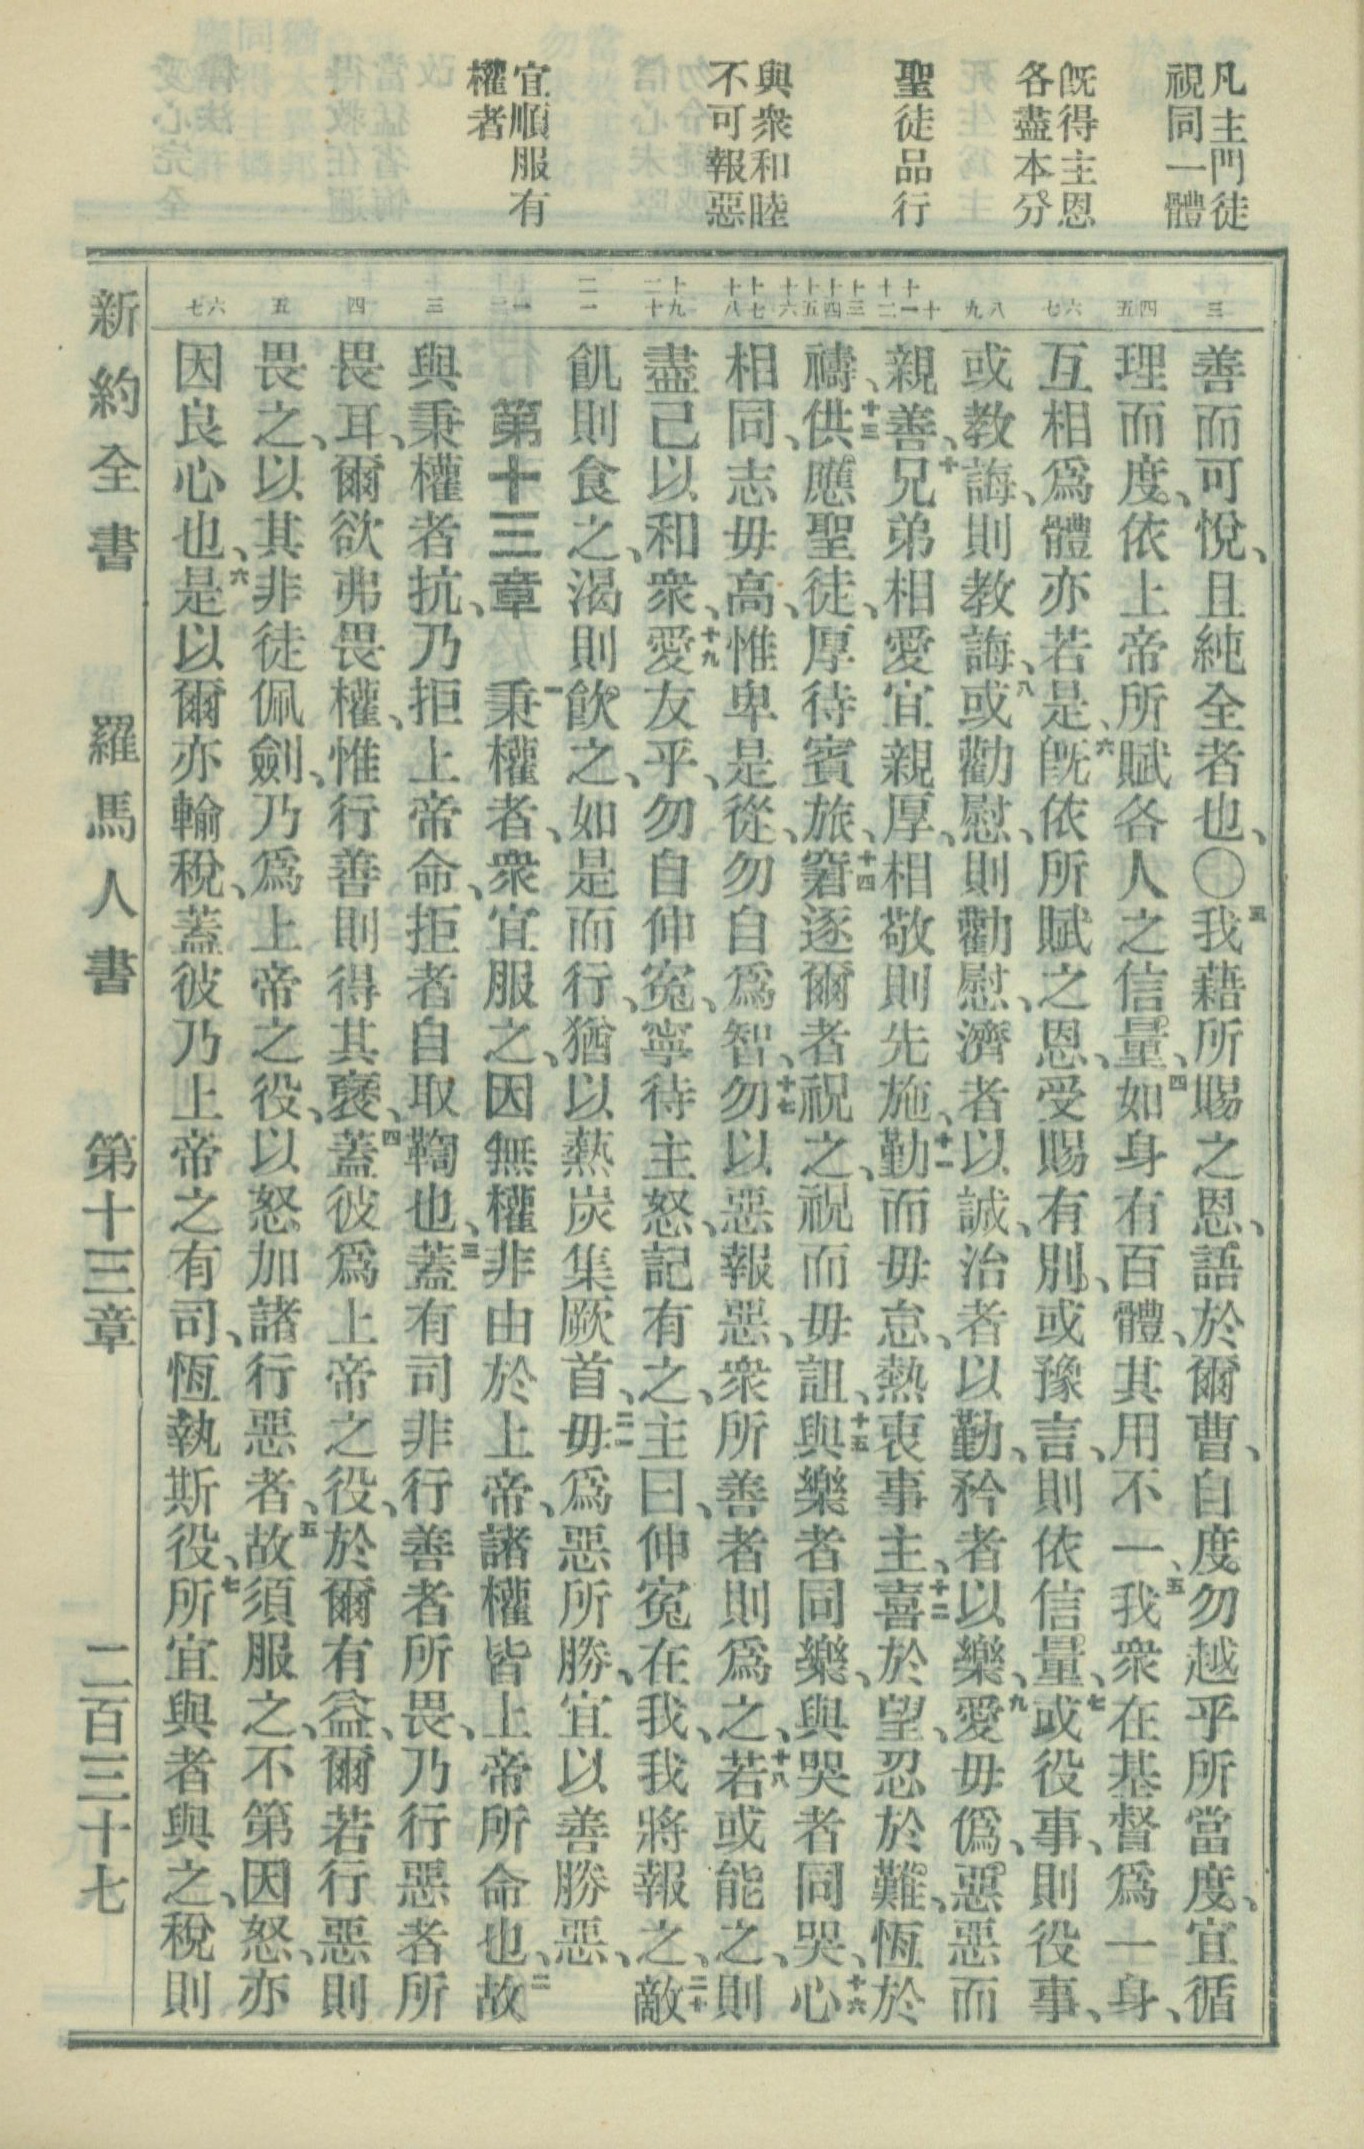 凡主門徒
視同一體
既得主恩
各盡本分
聖徒品行
與衆和睦
不可報惡
宜順服有
權者
三
四五
六七
八九
十十一十二
十三十四十五十六
十七十八
十九二十
二一
一二
三
四
五
六七
善而可悅、且純全者也、〇三我藉所賜之恩、語於爾曹、自度勿越乎所當度、宜循
理而度、依上帝所賦各人之信量、四如身有百體、其用不一、五我衆在基督爲一身、
互相爲體亦若是、六既依所賦之恩、受賜有別、或豫言、則依信量、七或役事、則役事、
或教誨、則教誨、八或勸慰、則勸慰、濟者以誠、治者以勤、矜者以樂、九愛毋僞、惡惡而
親善、十兄弟相愛宜親厚、相敬則先施、十一勤而毋怠、熱衷事主、十二喜於望、忍於難、恆於
禱、十三供應聖徒、厚待賓旅、十四窘逐爾者、祝之、祝而毋詛、十五與樂者同樂、與哭者同哭、十六心
相同、志毋高、惟卑是從、勿自爲智、十七勿以惡報惡、衆所善者則爲之、十八若或能之、則
盡己以和衆、十九愛友乎、勿自伸冤、寧待主怒、記有之、主曰、伸冤在我、我將報之、二十敵
飢則食之、渴則飲之、如是而行、猶以熱炭集厥首、二一毋爲惡所勝、宜以善勝惡、
第十三章 一秉權者、衆宜服之、因無權非由於上帝、諸權皆上帝所命也、二故
與秉權者抗、乃拒上帝命、拒者自取鞫也、三蓋有司非行善者所畏、乃行惡者所
畏耳、爾欲弗畏權、惟行善則得其襃、四蓋彼爲上帝之役、於爾有益、爾若行惡則
畏之、以其非徒佩劍、乃爲上帝之役、以怒加諸行惡者、五故須服之、不第因怒、亦
因良心也、六是以爾亦輸稅、蓋彼乃上帝之有司、恆執斯役、七所宜與者與之、稅則
新約全書 羅馬人書 第十三章 二百三十七